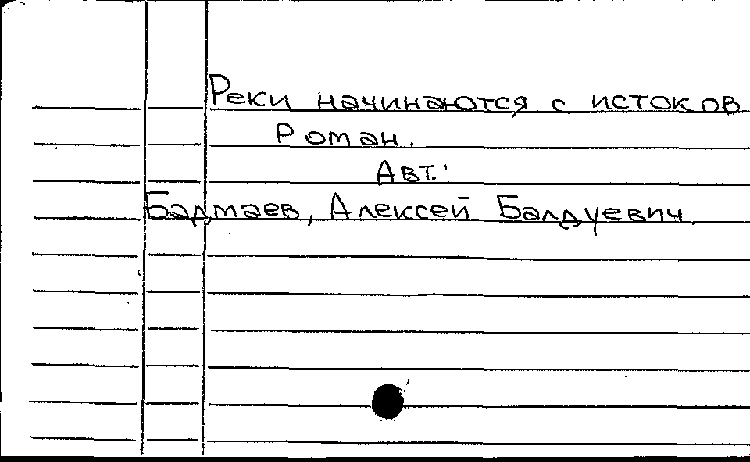 Реки начинаются с истоков
Роман.
Авт.:
Бадмаев, Алексей Балдуевич.